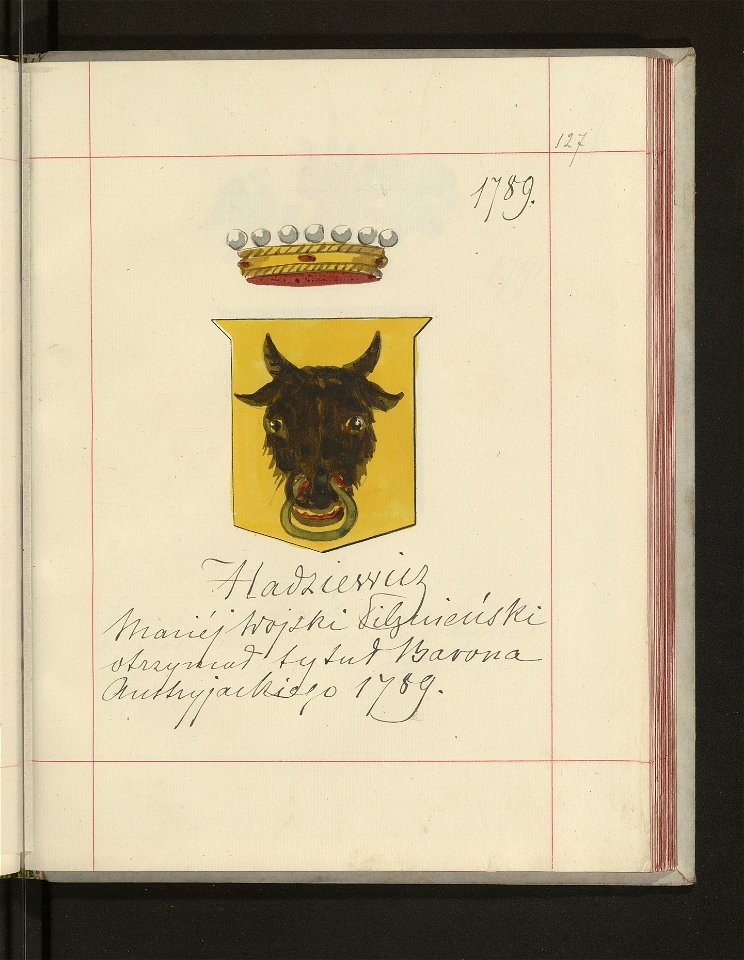 127
1789.
Hadziewicz
Maciéj Wojski Pilznieński
otrzymał tytuł Barona
Austryjackiego 1789.